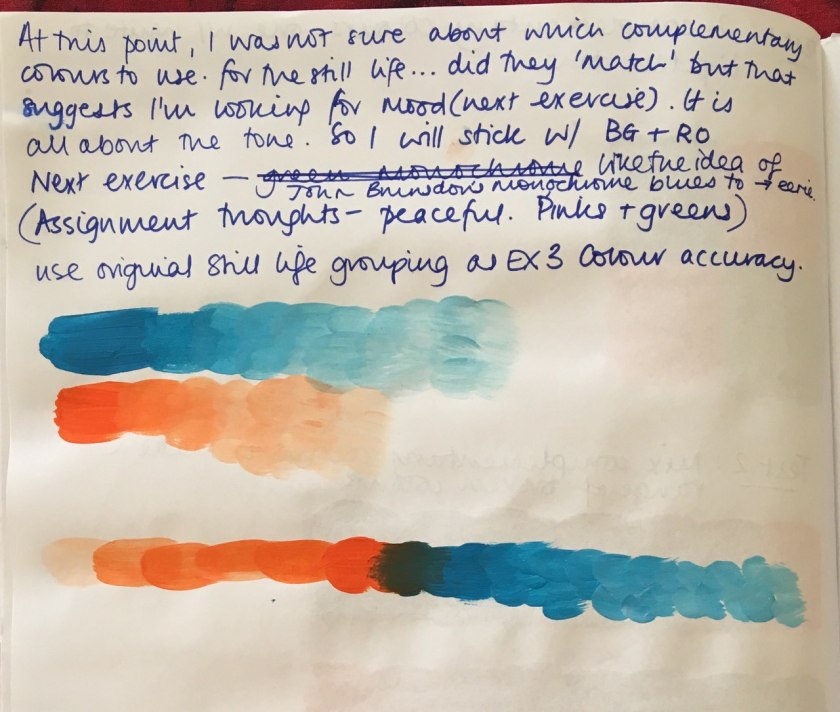 At this point, I was not sure about which complementary
colours to use. for the still life... did they 'match' but that
suggests I'm looking for mood (next exercise). It is
all about the tone. So I will stick w/ BG + RO
Next exercise — green monochrome like the idea of
John Brunsdon's monochrome blues to → eerie.
(Assignment thoughts - peaceful. Pinks + greens)
use original still life grouping as EX 3 Colour accuracy.